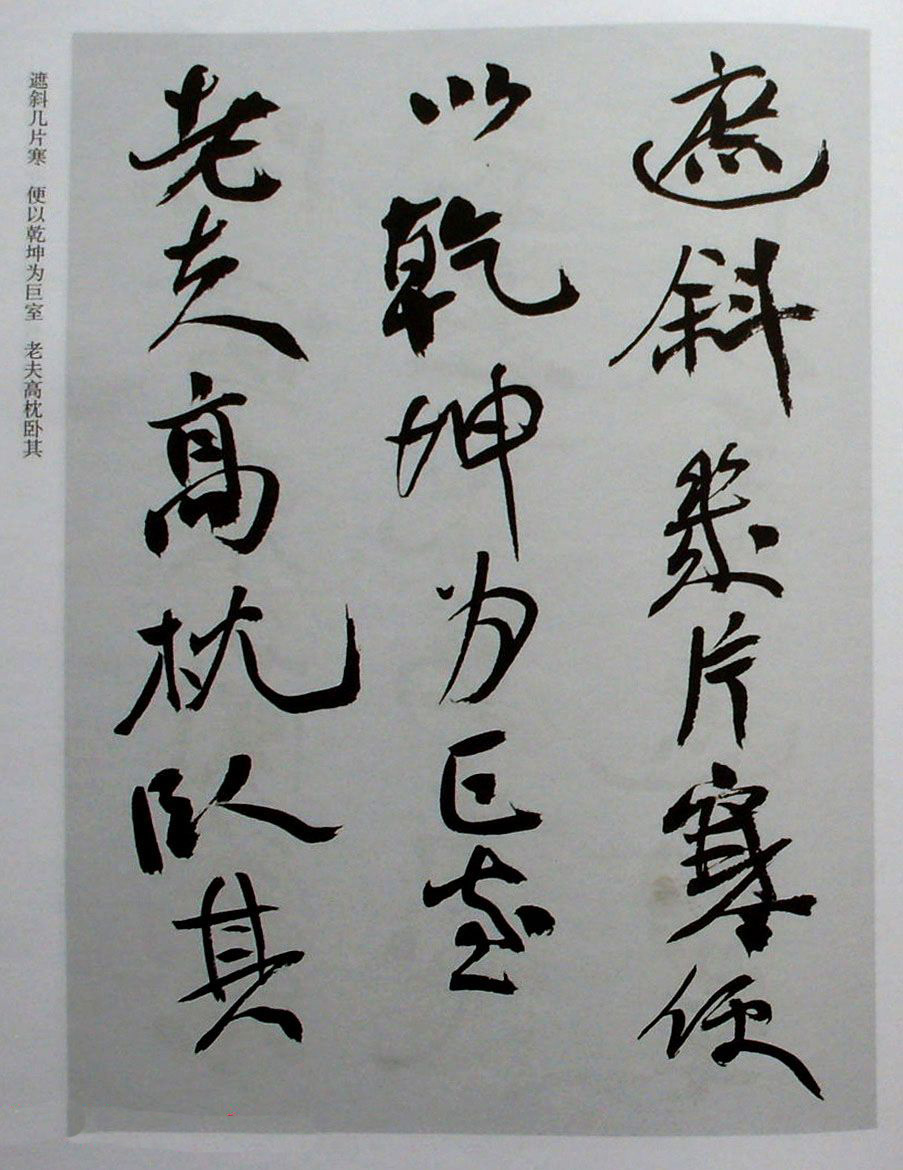 遮斜几片塞便
以乾坤为巨室
老夫高枕卧其
遮斜几片寒　便以乾坤为巨室　老夫高枕卧其